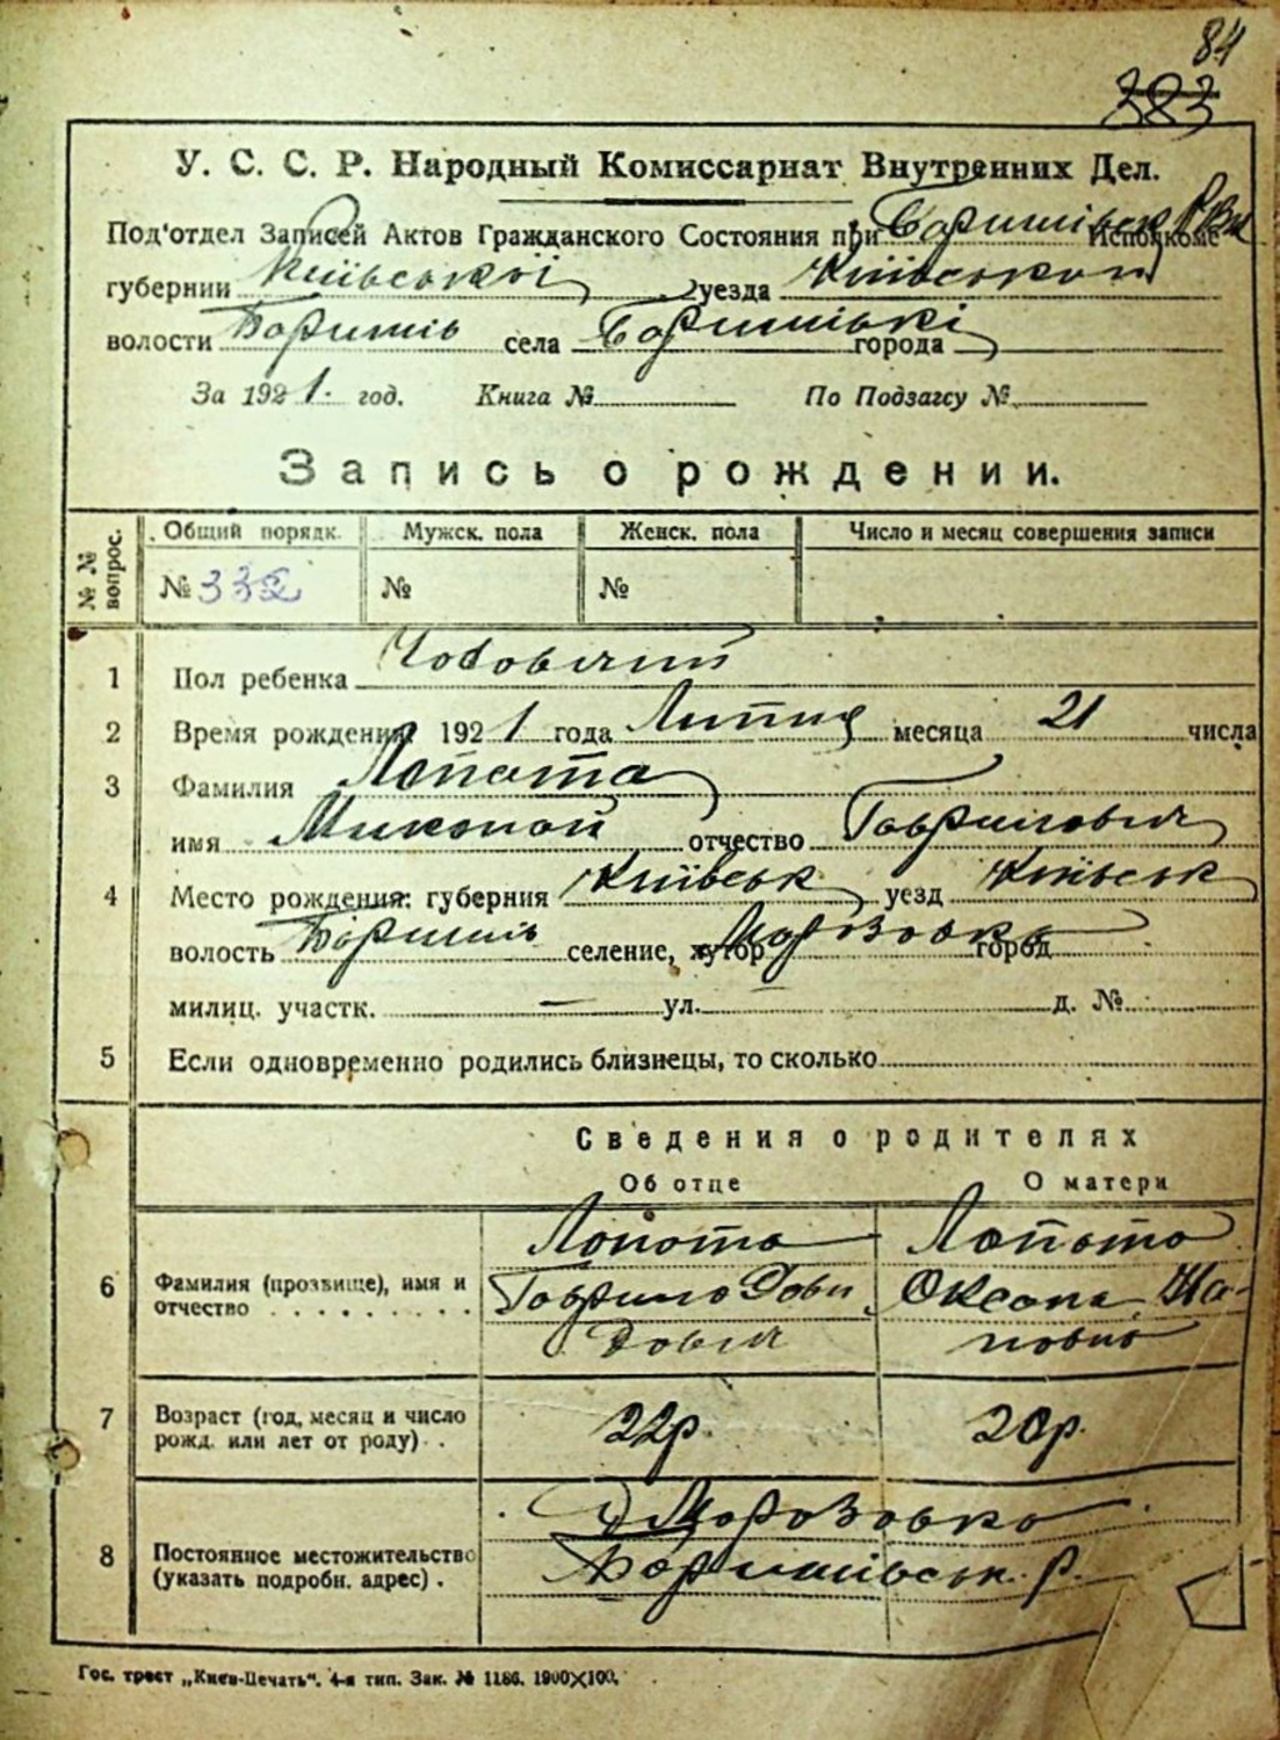 84
383
У. С. С. Р. Народный Комиссариат Внутренних Дел.
Под'отдел Записей Актов Гражданского Состояния при Баришівськ РВК Исполкоме
губернии Київської уезда Київського
волости Баришів села Баришівкі города
За 1921. год. Книга № По Подзагсу №
Запись о рождении.
№ № вопрос. Общий порядк. Мужск. пола Женск. пола Число и месяц совершения записи
№ 332 № №
1 Пол ребенка Чоловічий
2 Время рождения: 1921 года Липня месяца 21 числа
3 Фамилия Лопата
имя Миколай отчество Гаврилович
4 Место рождения: губерния Київськ уезд Київськ
волость Баришів селение, хутор Морозовка город
милиц. участк. — ул. д. №
5 Если одновременно родились близнецы, то сколько
Сведения о родителях
Об отце О матери
Лопата Лопата
6 Фамилия (прозвище), имя и отчество . . . . . . . . . Гаврило Дави Оксана
дович
7 Возраст (год, месяц и число рожд. или лет от роду) . . 22р. 20р.
Морозовка
8 Постоянное местожительство (указать подробн. адрес) . Баришівськ. р.
Гос. трест „Киев-Печать“. 4-я тип. Зак. № 1186. 1900×100.